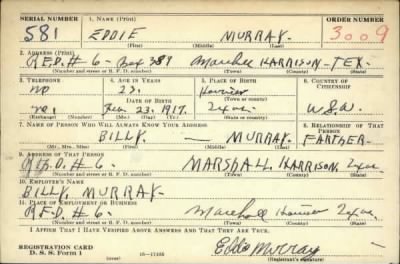 SERIAL NUMBER 1. NAME (Print) ORDER NUMBER
581 EDDIE MURRAY. 3009
(First) (Middle) (Last)
2. ADDRESS (Print)
R.F.D. # 6- Box 389 HARRISON-TEX
(Number and street or R. F. D. number) (Town) (County) (State)
3. TELEPHONE 4. AGE IN YEARS 5. PLACE OF BIRTH 6. COUNTRY OF CITIZENSHIP
no 23.
DATE OF BIRTH (Town or county)
23. 1917. Texas U.S.A.
(Mo.) (Day) (Yr.) (State or country)
7. NAME OF PERSON WHO WILL ALWAYS KNOW YOUR ADDRESS 8. RELATIONSHIP OF THAT PERSON
BILLY. — MURRAY. FARTHER.
(Mr., Mrs., Miss) (First) (Middle) (Last)
9. ADDRESS OF THAT PERSON
R.F.D. # 6- MARSHALL. HARRISON. Texas
(Number and street or R. F. D. number) (Town) (County) (State)
10. EMPLOYER'S NAME
BILLY. MURRAY.
11. PLACE OF EMPLOYMENT OR BUSINESS
R.F.D. # 6- Marshall Texas.
(Number and street or R. F. D. number) (Town) (County) (State)
I AFFIRM THAT I HAVE VERIFIED ABOVE ANSWERS AND THAT THEY ARE TRUE.
REGISTRATION CARD
D. S. S. Form 1 Eddie Murray
(Registrant's signature)